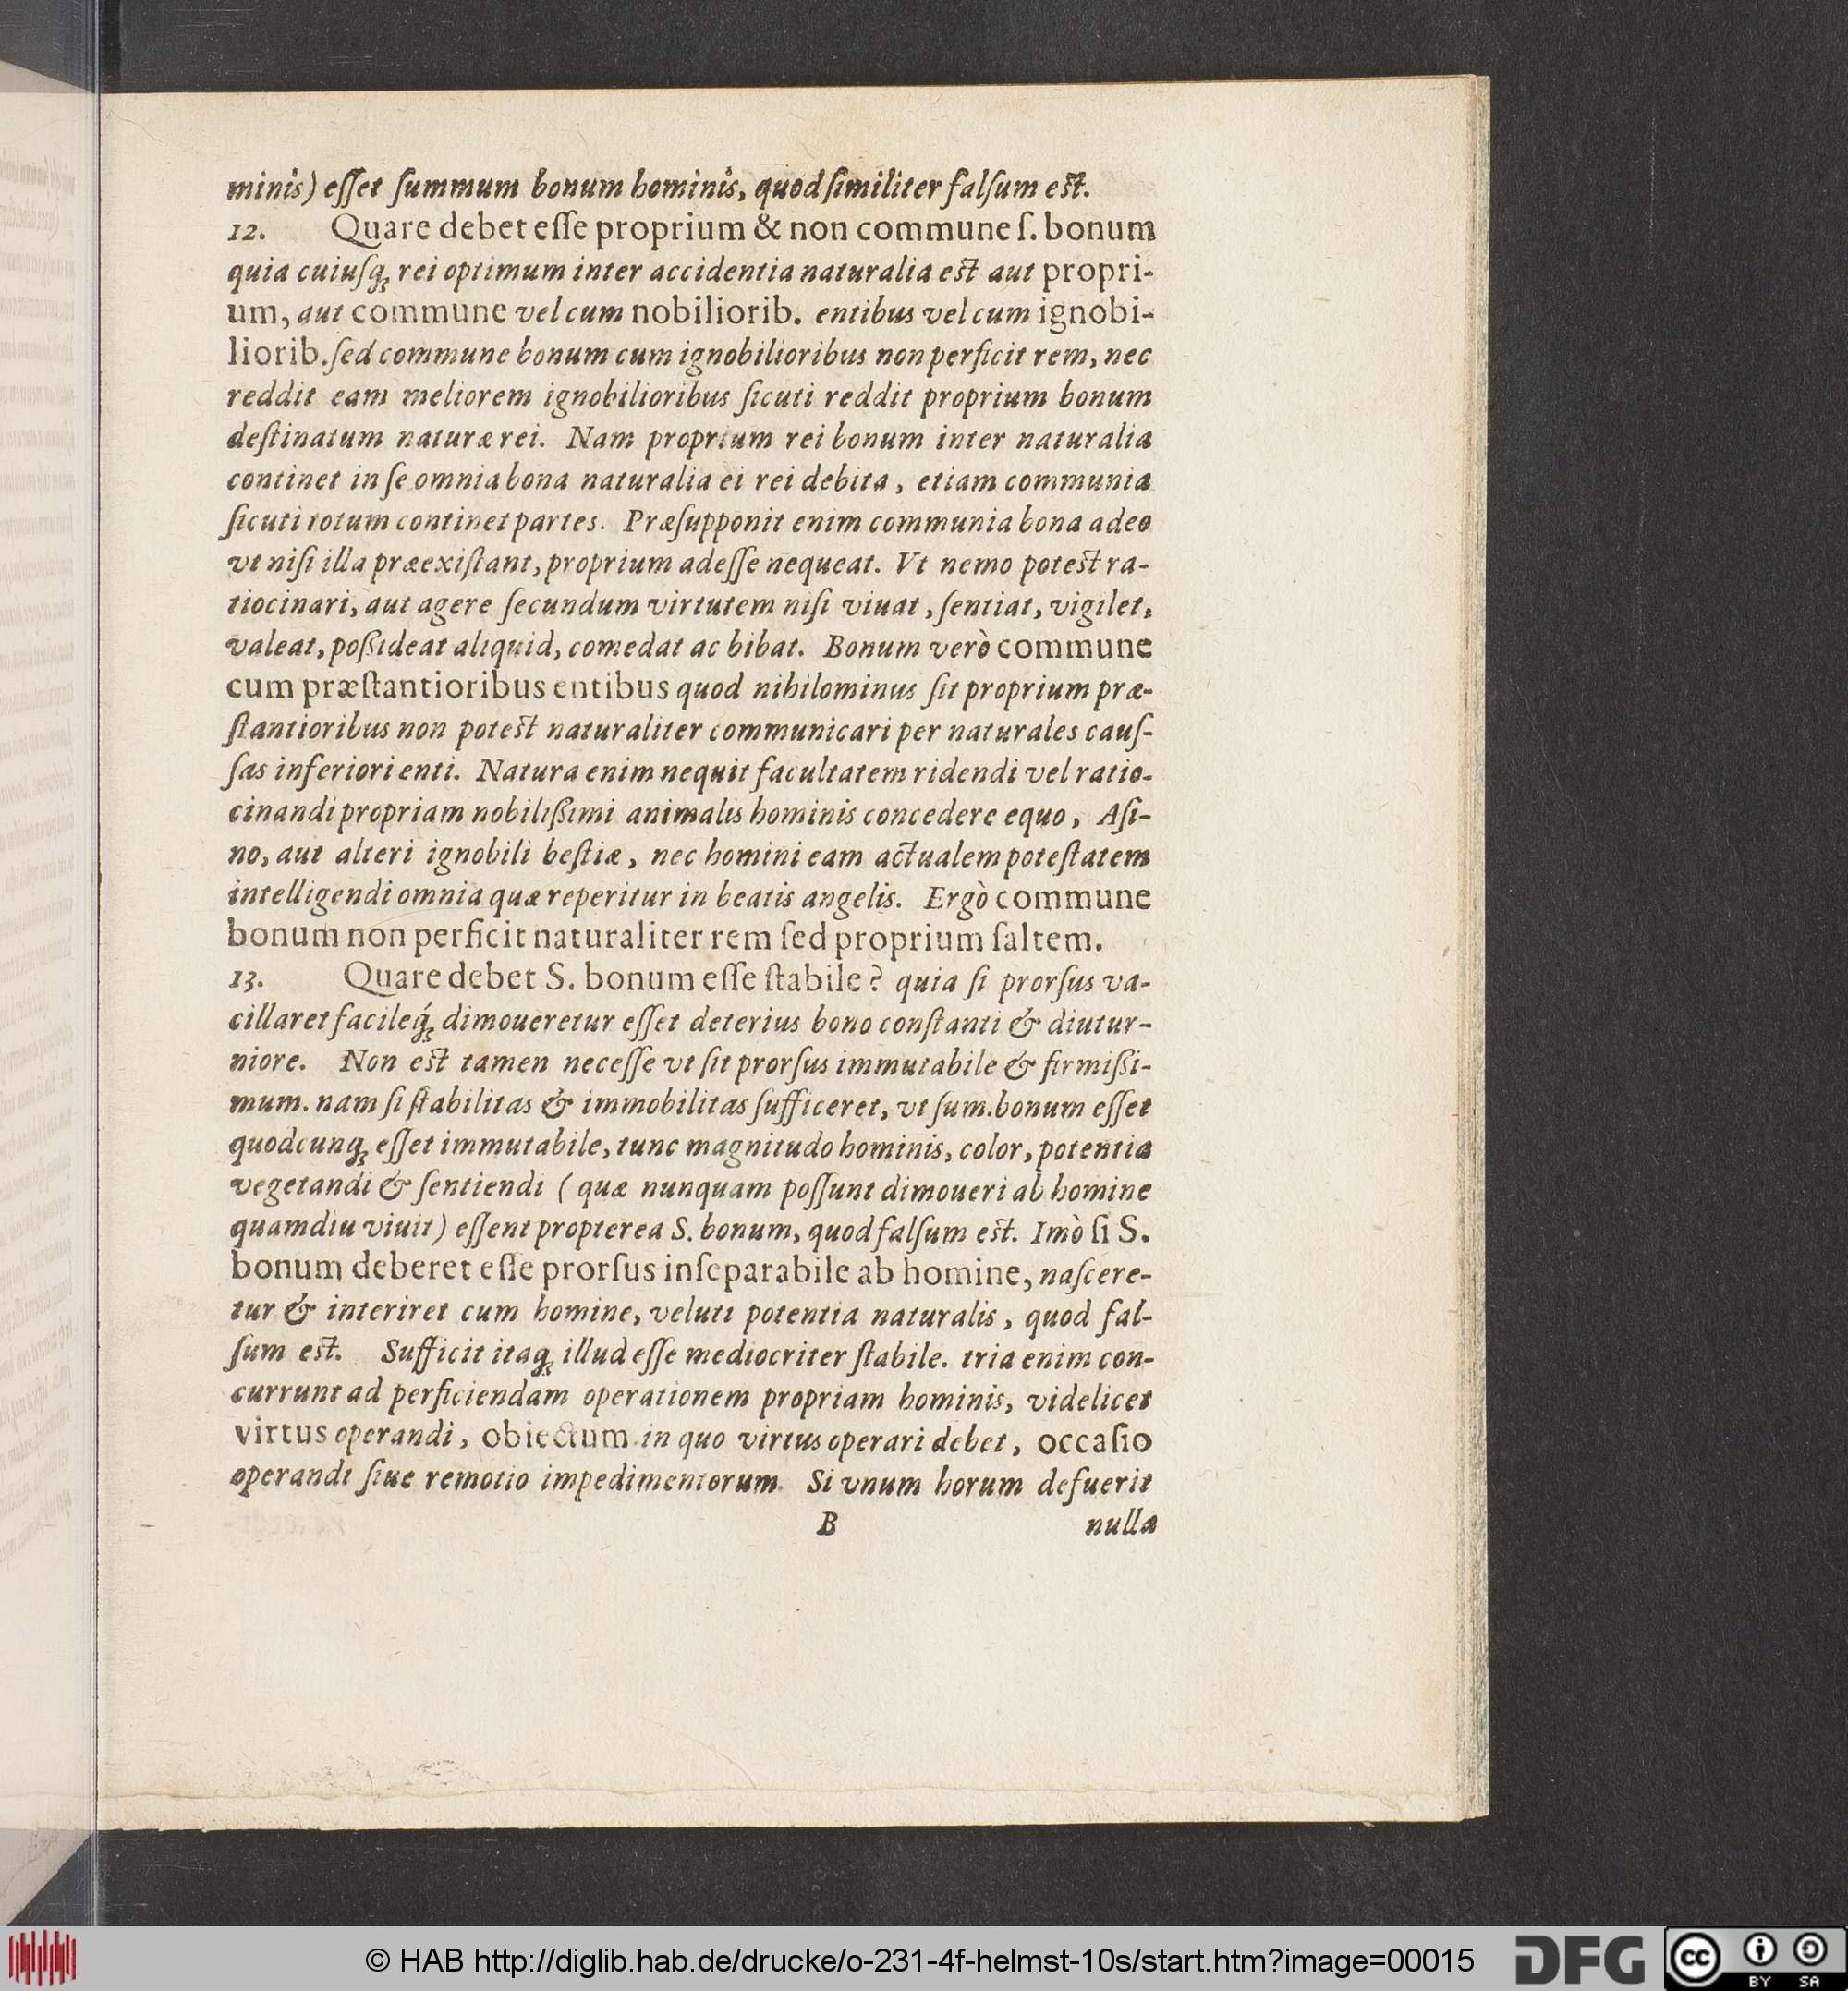 minis) eſſet ſummum bonum hominis, quod ſimiliter falſum est.
12. Quare debet eſſe proprium & non commune ſ. bonum
quia cuiuſq; rei optimum inter accidentia naturalia est aut propri-
um, aut commune vel cum nobiliorib. entibus vel cum ignobi-
liorib. ſed commune bonum cum ignobilioribus non perficit rem, nec
reddit eam meliorem ignobilioribus ſicuti reddit proprium bonum
deſtinatum naturæ rei. Nam proprium rei bonum inter naturalia
continet in ſe omnia bona naturalia ei rei debita, etiam communia
ſicuti totum continet partes. Præſupponit enim communia bona adeo
vt niſi illa præexiſtant, proprium adeſſe nequeat. Vt nemo potest ra-
tiocinari, aut agere ſecundum virtutem niſi viuat, ſentiat, vigilet,
valeat, poßideat aliquid, comedat ac bibat. Bonum verò commune
cum præſtantioribus entibus quod nihilominus ſit proprium præ-
ſtantioribus non potest naturaliter communicari per naturales cauſ-
ſas inferiori enti. Natura enim nequit facultatem ridendi vel ratio-
cinandi propriam nobilißimi animalis hominis concedere equo, Aſi-
no, aut alteri ignobili beſtiæ, nec homini eam actualem poteſtatem
intelligendi omnia quæ reperitur in beatis angelis. Ergò commune
bonum non perficit naturaliter rem ſed proprium ſaltem.
13. Quare debet S. bonum eſſe ſtabile? quia ſi prorſus va-
cillaret facileq́; dimoueretur eſſet deterius bono conſtanti & diutur-
niore. Non est tamen neceſſe vt ſit prorſus immutabile & firmißi-
mum. nam ſi ſtabilitas & immobilitas ſufficeret, vt ſum. bonum eſſet
quodcunq; eſſet immutabile, tunc magnitudo hominis, color, potentia
vegetandi & ſentiendi ( quæ nunquam poſſunt dimoueri ab homine
quamdiu viuit) eſſent propterea S. bonum, quod falſum est. Imò ſi S.
bonum deberet eſſe prorſus inſeparabile ab homine, naſcere-
tur & interiret cum homine, veluti potentia naturalis, quod fal-
ſum est. Sufficit itaq; illud eſſe mediocriter ſtabile. tria enim con-
currunt ad perficiendam operationem propriam hominis, videlicet
virtus operandi, obiectum in quo virtus operari debet, occaſio
operandi ſiue remotio impedimentorum. Si vnum horum defuerit
B nulla
© HAB http://diglib.hab.de/drucke/o-231-4f-helmst-10s/start.htm?image=00015
DFG
cc BY SA